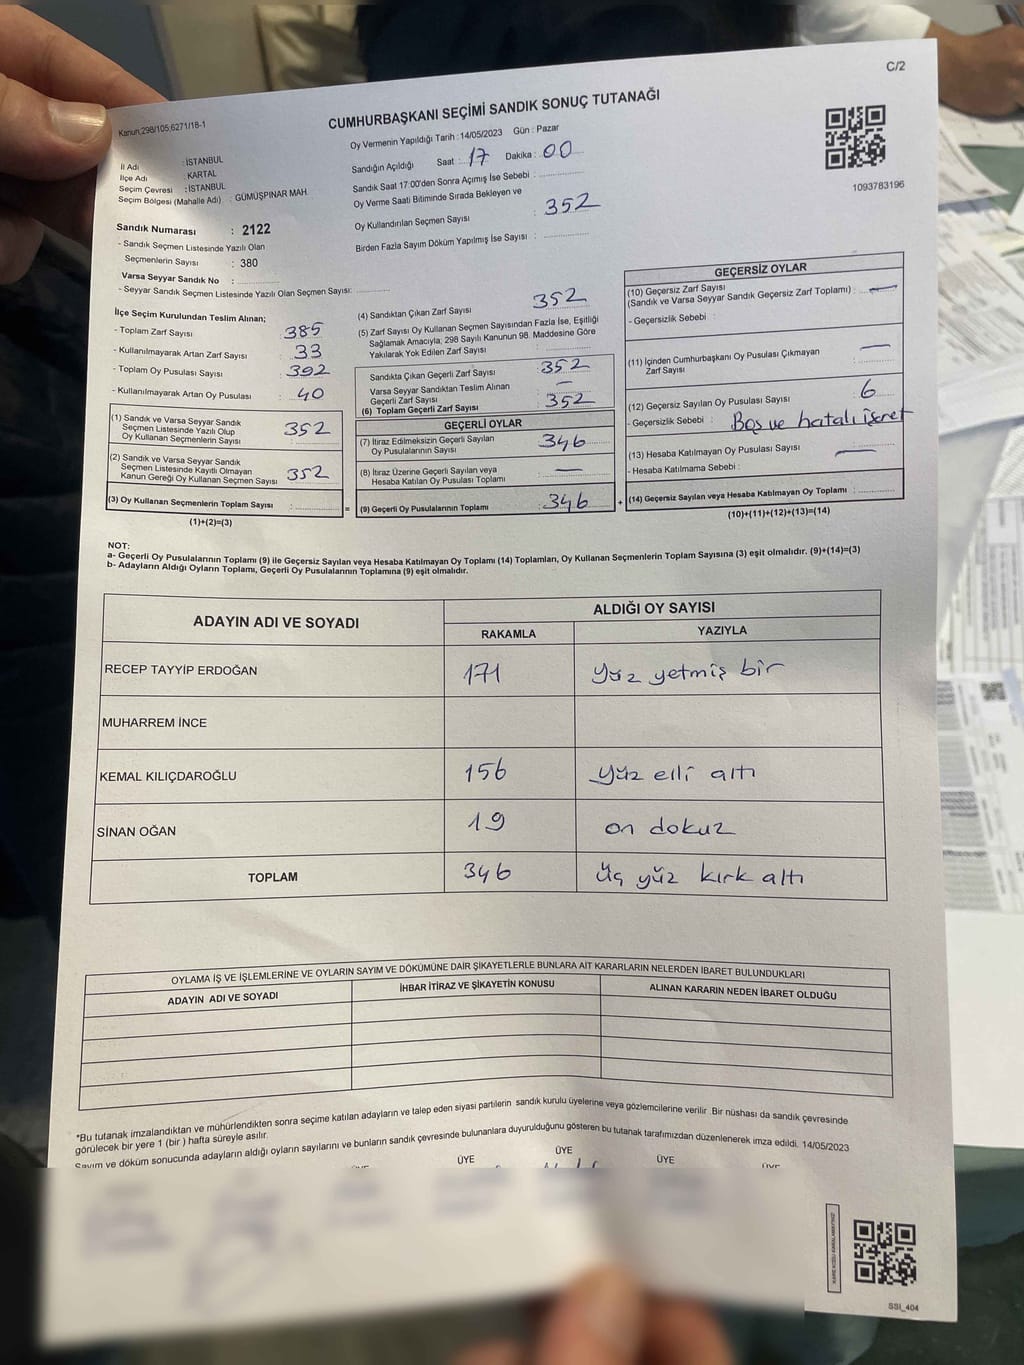 C/2
Kanun:298/105,6271/18-1
CUMHURBAŞKANI SEÇİMİ SANDIK SONUÇ TUTANAĞI
Oy Vermenin Yapıldığı Tarih : 14/05/2023 Gün : Pazar
İl Adı : İSTANBUL
İlçe Adı : KARTAL
Seçim Çevresi : İSTANBUL
Seçim Bölgesi (Mahalle Adı) : GÜMÜŞPINAR MAH.
Sandığın Açıldığı Saat : 17 Dakika : 00
Sandık Saat 17:00'den Sonra Açımış İse Sebebi :
Oy Verme Saati Bitiminde Sırada Bekleyen ve
Oy Kullandırılan Seçmen Sayısı : 352
Birden Fazla Sayım Döküm Yapılmış İse Sayısı :
1093783196
Sandık Numarası : 2122
- Sandık Seçmen Listesinde Yazılı Olan
Seçmenlerin Sayısı : 380
Varsa Seyyar Sandık No :
- Seyyar Sandık Seçmen Listesinde Yazılı Olan Seçmen Sayısı:
İlçe Seçim Kurulundan Teslim Alınan;
- Toplam Zarf Sayısı : 385
- Kullanılmayarak Artan Zarf Sayısı : 33
- Toplam Oy Pusulası Sayısı : 392
- Kullanılmayarak Artan Oy Pusulası : 40
(1) Sandık ve Varsa Seyyar Sandık
Seçmen Listesinde Yazılı Olup
Oy Kullanan Seçmenlerin Sayısı : 352
(2) Sandık ve Varsa Seyyar Sandık
Seçmen Listesinde Kayıtlı Olmayan
Kanun Gereği Oy Kullanan Seçmen Sayısı : 352
(3) Oy Kullanan Seçmenlerin Toplam Sayısı : =
(1)+(2)=(3)
(4) Sandıktan Çıkan Zarf Sayısı : 352
(5) Zarf Sayısı Oy Kullanan Seçmen Sayısından Fazla İse, Eşitliği
Sağlamak Amacıyla; 298 Sayılı Kanunun 98. Maddesine Göre
Yakılarak Yok Edilen Zarf Sayısı :
Sandıkta Çıkan Geçerli Zarf Sayısı : 352
Varsa Seyyar Sandıktan Teslim Alınan
Geçerli Zarf Sayısı : —
(6) Toplam Geçerli Zarf Sayısı : 352
GEÇERLİ OYLAR
(7) İtiraz Edilmeksizin Geçerli Sayılan
Oy Pusulasının Sayısı : 346
(8) İtiraz Üzerine Geçerli Sayılan veya
Hesaba Katılan Oy Pusulası Toplamı : —
(9) Geçerli Oy Pusulalarının Toplamı : 346 +
GEÇERSİZ OYLAR
(10) Geçersiz Zarf Sayısı
(Sandık ve Varsa Seyyar Sandık Geçersiz Zarf Toplamı) : —
- Geçersizlik Sebebi :
(11) İçinden Cumhurbaşkanı Oy Pusulası Çıkmayan
Zarf Sayısı : —
(12) Geçersiz Sayılan Oy Pusulası Sayısı : 6
- Geçersizlik Sebebi : Boş ve hatalı işaret
(13) Hesaba Katılmayan Oy Pusulası Sayısı : —
- Hesaba Katılmama Sebebi :
(14) Geçersiz Sayılan veya Hesaba Katılmayan Oy Toplamı :
(10)+(11)+(12)+(13)=(14)
NOT:
a- Geçerli Oy Pusulalarının Toplamı (9) ile Geçersiz Sayılan veya Hesaba Katılmayan Oy Toplamı (14) Toplamları, Oy Kullanan Seçmenlerin Toplam Sayısına (3) eşit olmalıdır. (9)+(14)=(3)
b- Adayların Aldığı Oyların Toplamı, Geçerli Oy Pusulalarının Toplamına (9) eşit olmalıdır.
ADAYIN ADI VE SOYADI ALDIĞI OY SAYISI
RAKAMLA YAZIYLA
RECEP TAYYİP ERDOĞAN 171 yüz yetmiş bir
MUHARREM İNCE
KEMAL KILIÇDAROĞLU 156 yüz elli altı
SİNAN OĞAN 19 on dokuz
TOPLAM 346 üç yüz kırk altı
OYLAMA İŞ VE İŞLEMLERİNE VE OYLARIN SAYIM VE DÖKÜMÜNE DAİR ŞİKAYETLERLE BUNLARA AİT KARARLARIN NELERDEN İBARET BULUNDUKLARI
ADAYIN ADI VE SOYADI İHBAR İTİRAZ VE ŞİKAYETİN KONUSU ALINAN KARARIN NEDEN İBARET OLDUĞU
*Bu tutanak imzalandıktan ve mühürlendikten sonra seçime katılan adayların ve talep eden siyasi partilerin sandık kurulu üyelerine veya gözlemcilerine verilir .Bir nüshası da sandık çevresinde
görülecek bir yere 1 (bir ) hafta süreyle asılır.
Sayım ve döküm sonucunda adayların aldığı oyların sayılarını ve bunların sandık çevresinde bulunanlara duyurulduğunu gösteren bu tutanak tarafımızdan düzenlenerek imza edildi. 14/05/2023
ÜYE ÜYE ÜYE ÜYE ÜYE
SSI_404